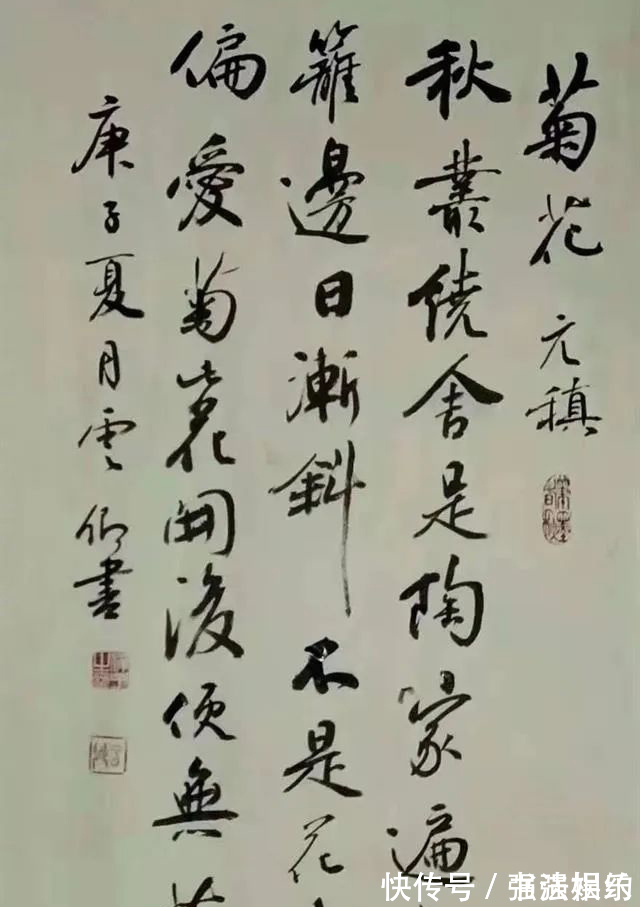 菊花 元稹
秋叢繞舍是陶家遍
籬邊日漸斜不是花
偏愛菊此花開後便無
庚子夏月雲卿書
快传号 /